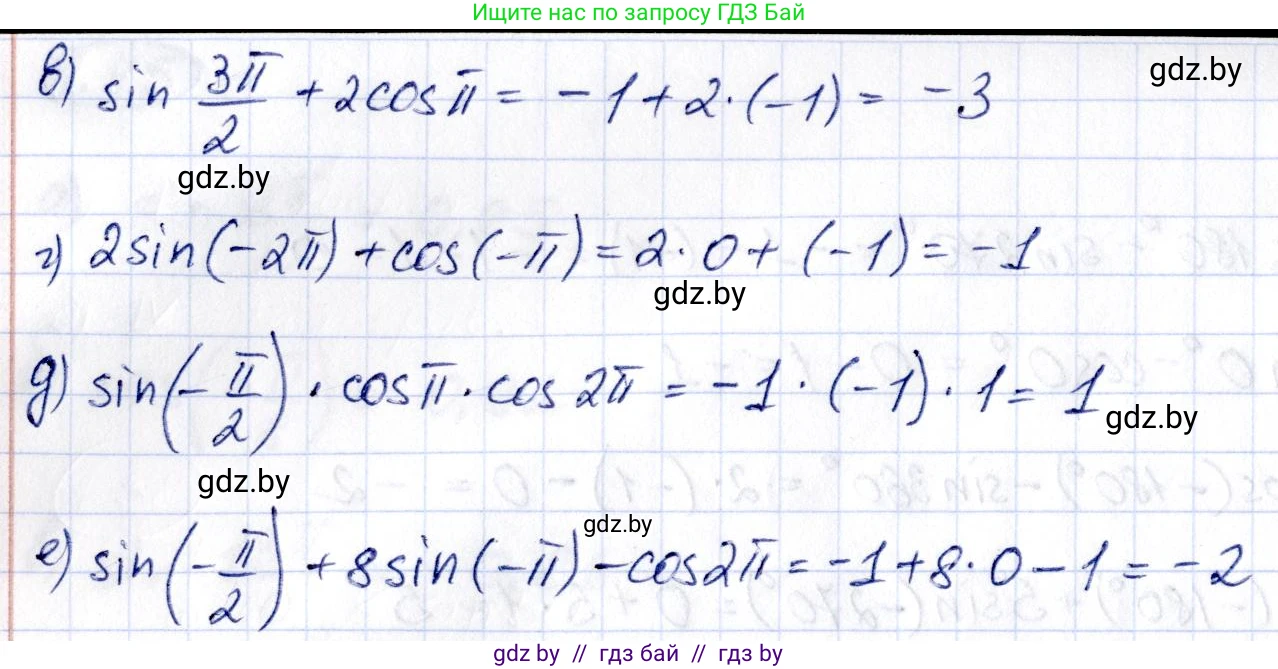 Ищите нас по запросу ГДЗ Бай
в) sin 3π/2 + 2cosπ = -1 + 2·(-1) = -3
gdz.by
gdz.by
г) 2sin(-2π) + cos(-π) = 2·0 + (-1) = -1
gdz.by
д) sin(-π/2) · cosπ · cos2π = -1 · (-1) · 1 = 1
gdz.by
gdz.by
gdz.by
е) sin(-π/2) + 8sin(-π) - cos2π = -1 + 8·0 - 1 = -2
gdz by // гдз бай // gdz by